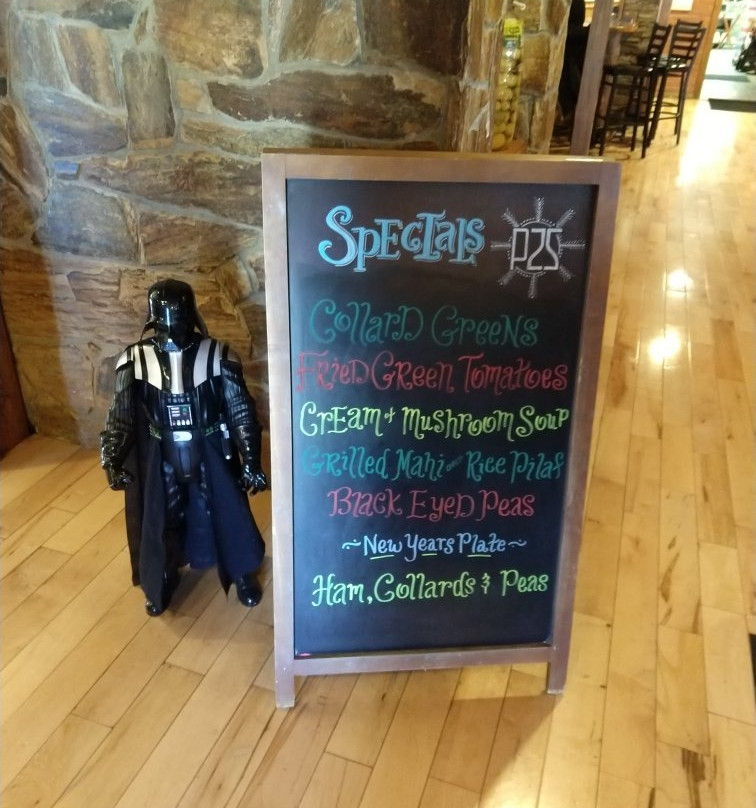 Specials P25
Collard Greens
Fried Green Tomatoes
Cream of Mushroom Soup
Grilled Mahi over Rice Pilaf
Black Eyed Peas
~New Years Plate~
Ham, Collards & Peas